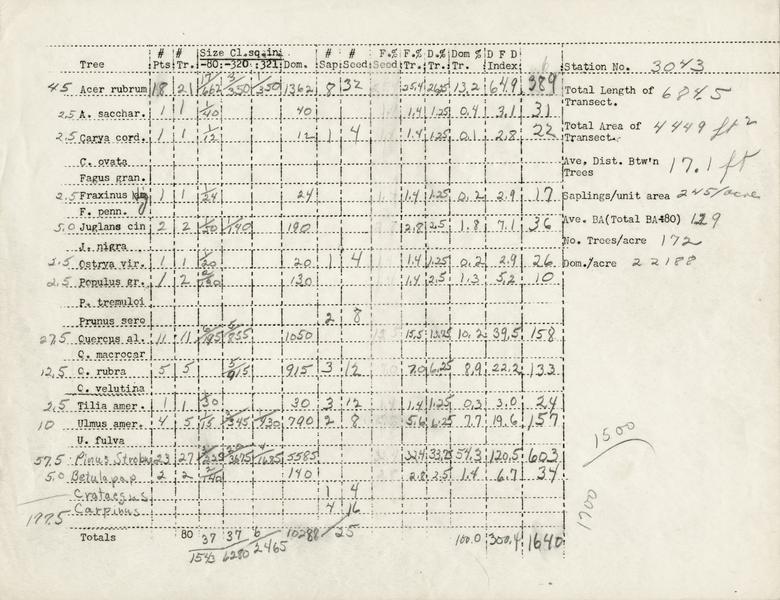 # # Size Cl.sq.in. # # F.% F.% D.% Dom % D F D
Tree Pts. Tr. -80: -320 :321 Dom. Sap. Seed. Seed Tr. Tr. Tr. Index Station No. 3043
45 Acer rubrum 18 21 17/662 3/350 1/350 1362 8 32 25.4 26.25 13.2 64.9 389
Total Length of Transect. 684.5
2.5 A. sacchar. 1 1 1/40 40 1.4 1.25 0.4 3.1 31
2.5 Carya cord. 1 1 1/12 12 1 4 1.4 1.25 0.1 2.8 22
Total Area of Transect. 4449 ft²
C. ovata
Fagus gran.
Ave. Dist. Btw'n Trees 17.1 ft
2.5 Fraxinus 1 1 1/24 24 1.4 1.25 0.2 2.9 17
Saplings/unit area 245/acre
F. penn.
5.0 Juglans cin 2 2 1/50 1/140 190 2.8 2.5 1.8 7.1 36
Ave. BA(Total BA÷80) 129
J. nigra
No. Trees/acre 172
2.5 Ostrya vir. 1 1 1/20 20 1 4 1.4 1.25 0.2 2.9 26
Dom./acre 22188
2.5 Populus gr. 1 2 2/130 130 1.4 2.5 1.3 5.2 10
P. tremuloi
Prunus sero 2 8
27.5 Quercus al. 11 11 6/195 5/855 1050 15.5 13.75 10.2 39.5 158
Q. macrocar
12.5 Q. rubra 5 5 5/915 915 3 12 7.0 6.25 8.9 22.2 133
Q. velutina
2.5 Tilia amer. 1 1 1/30 30 3 12 1.4 1.25 0.3 3.0 24
10 Ulmus amer. 4 5 2 8 790 5.6 6.25 7.7 19.6 157
U. fulva
57.5 Pinus Strobus 23 27 5585 32.4 33.75 54.3 120.5 603
5.0 Betula pap 2 2 2/140 140 2.8 2.5 1.4 6.7 34
Crataegus 1 4
177.5 Carpinus 4 16
Totals 80 37/1543 37/6280 6/2465 10288 25 100.0 300.4 1640
1500
1700